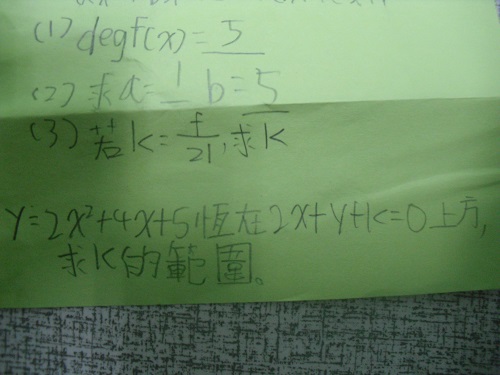 (1) degf(x)= 5
(2) 求a= 1 b= 5
(3) 若k= f/21, 求k
y=2x²+4x+5恆在2x+y+k=0上方,
求k的範圍。